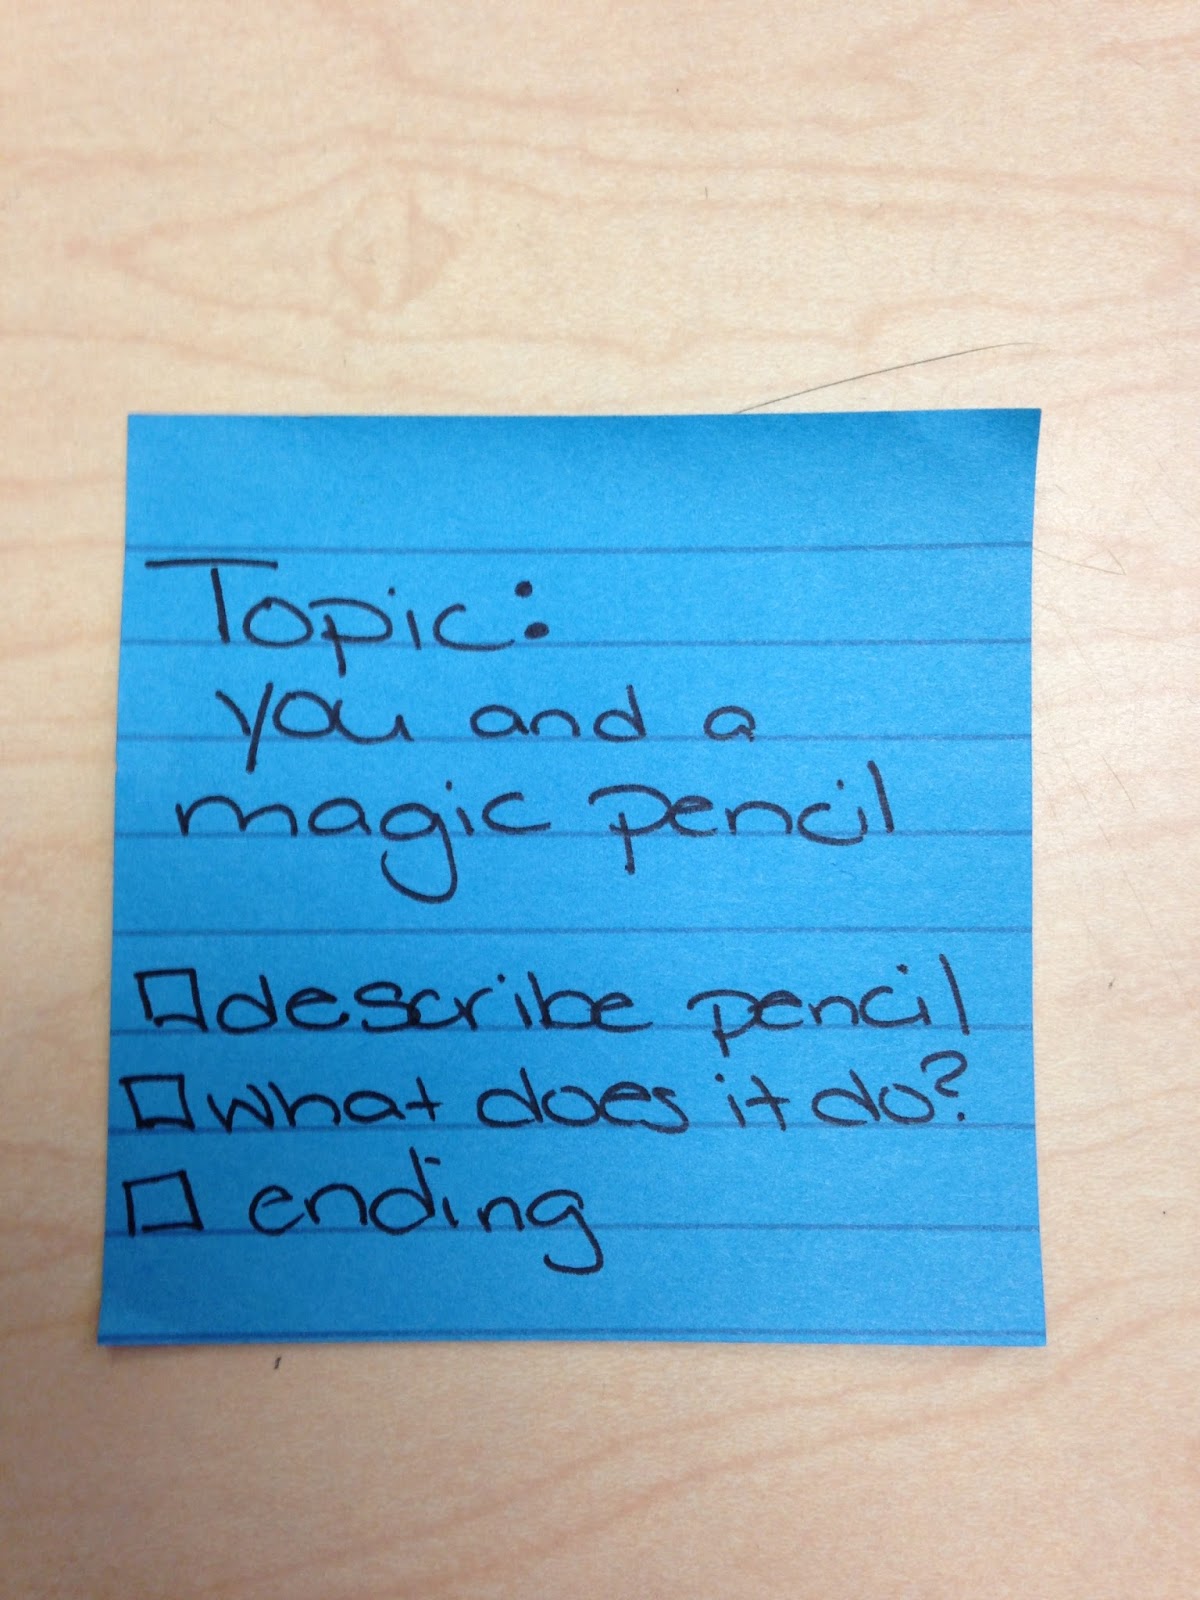 Topic:
you and a
magic pencil
☐ describe pencil
☐ what does it do?
☐ ending